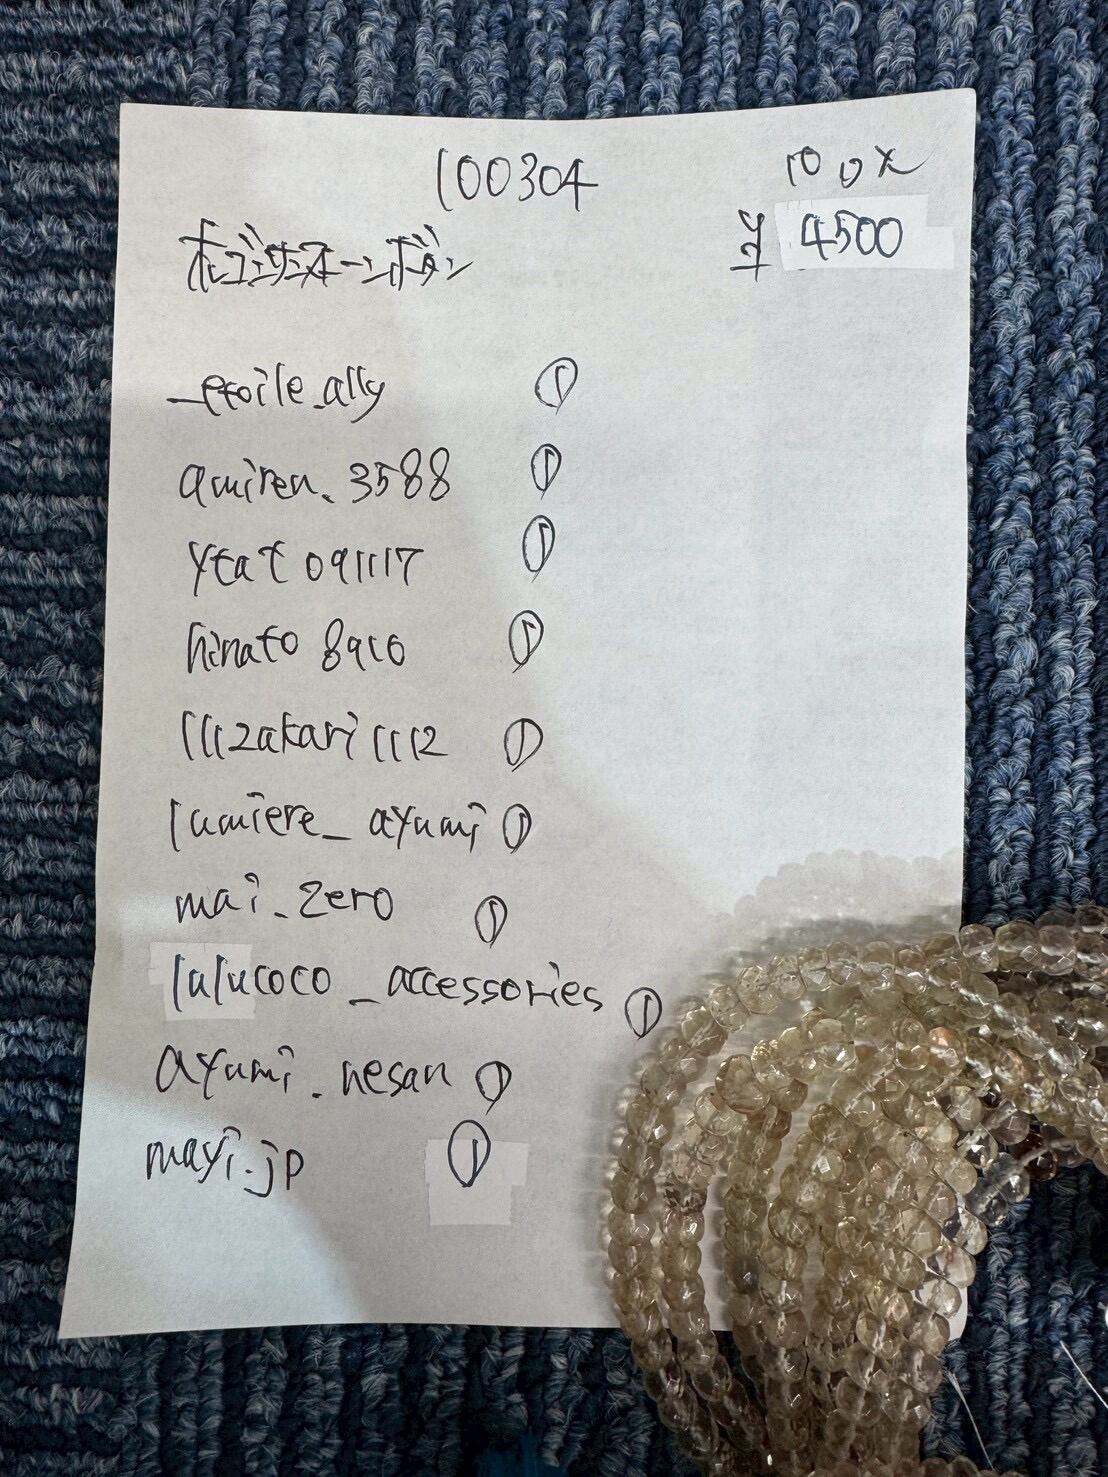 100304
¥ 4500
_etoile_ally ①
amiren_3588 ①
ytat091117 ①
hinato8910 ①
111zakari1112 ①
lumiere_ayumi ①
mai_zero ①
lulucoco_accessories ①
ayumi.nesan ①
mayi.jp ①